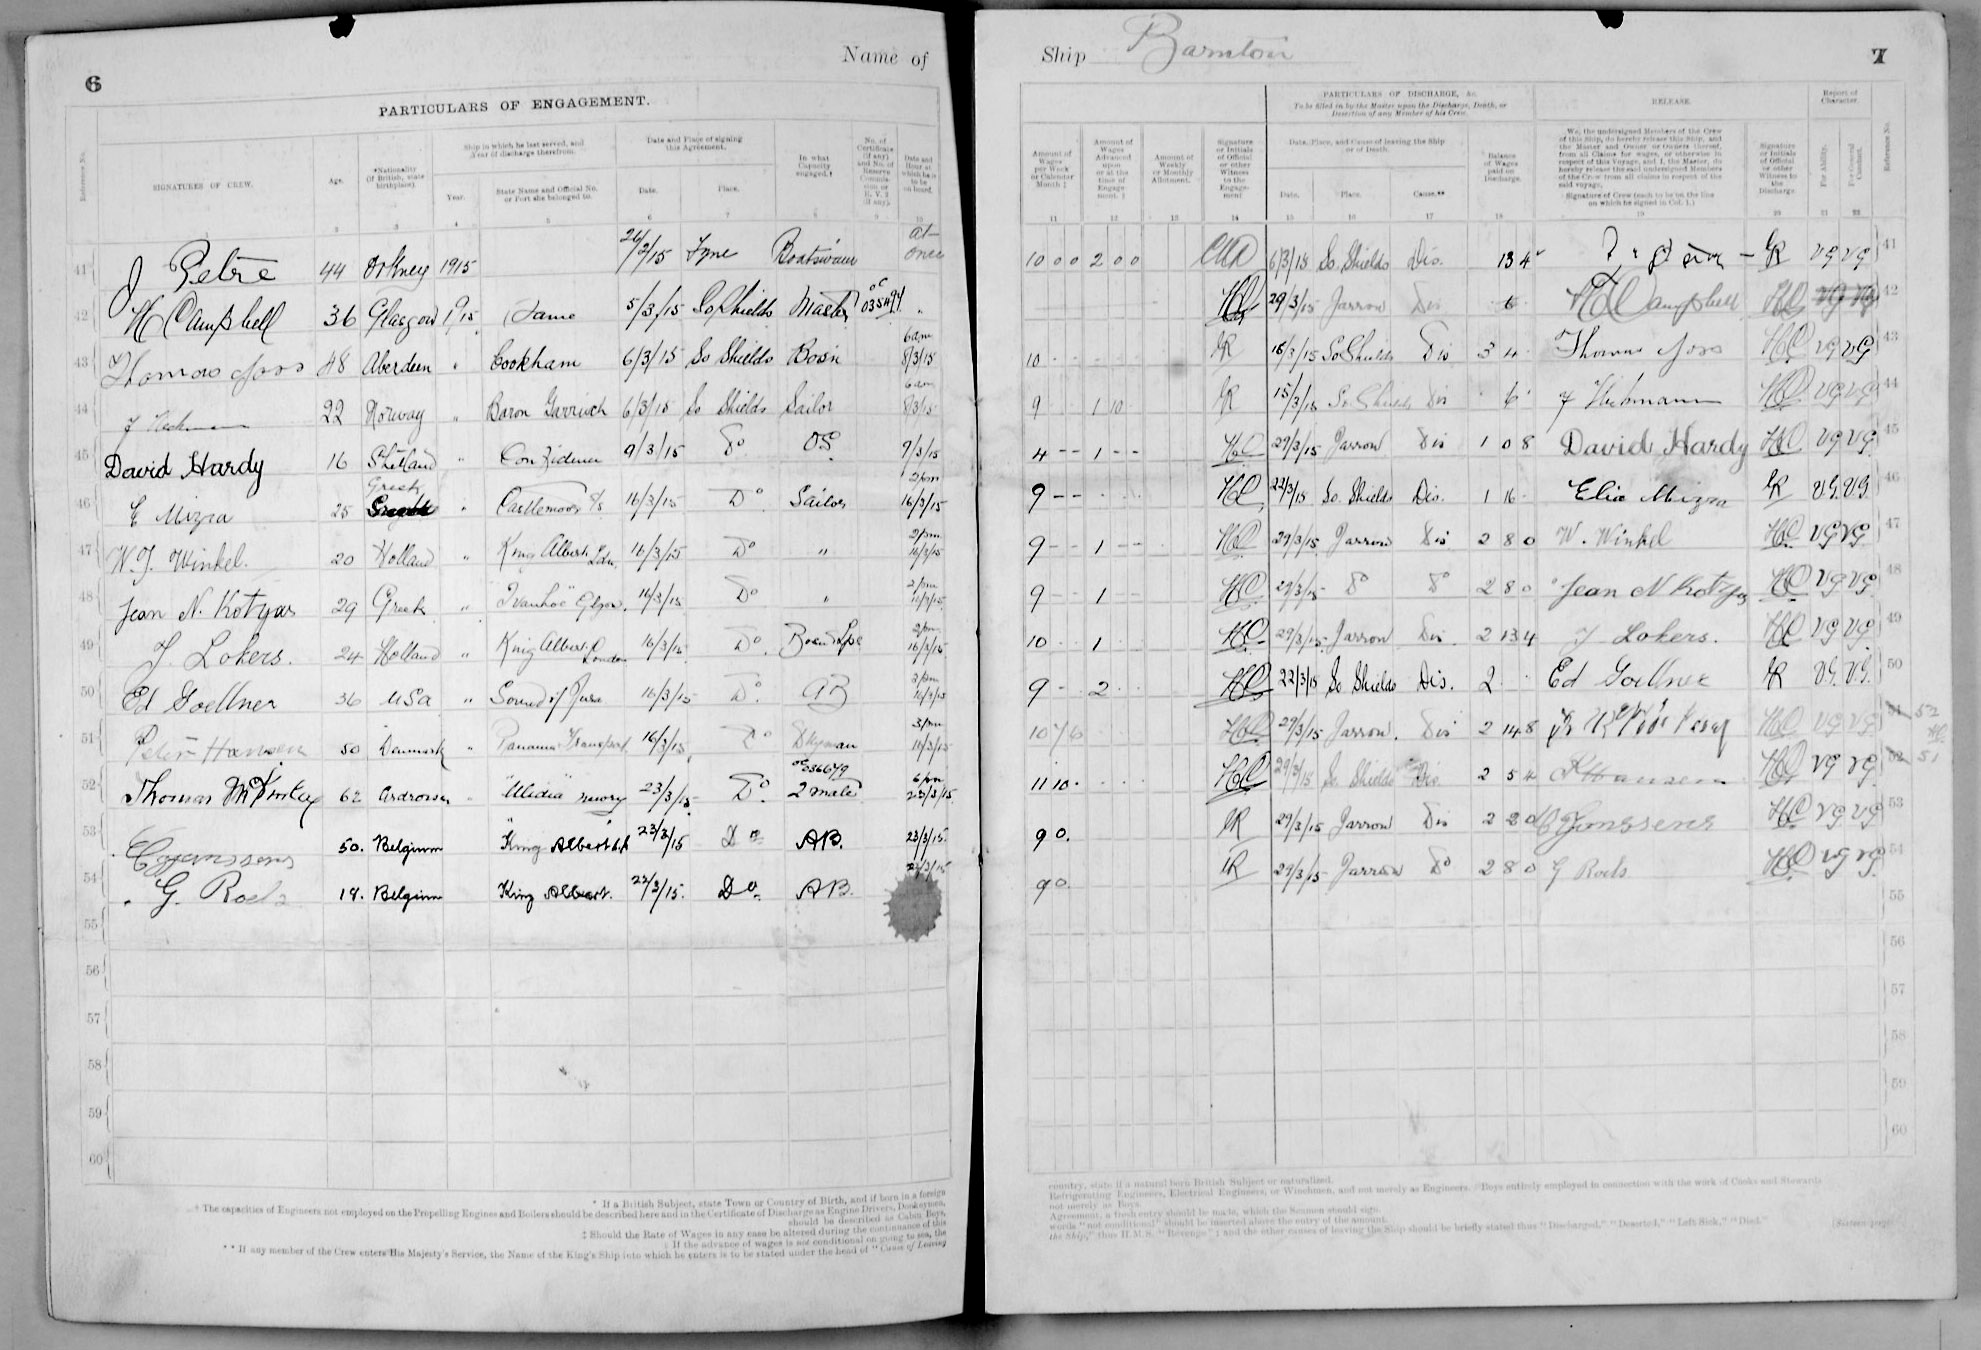 6
Name of
PARTICULARS OF ENGAGEMENT.
Reference No.
SIGNATURES OF CREW.
Age.
*Nationality (If British, state birthplace).
Ship in which he last served, and Year of discharge therefrom.
Year.
State Name and Official No. or Port she belonged to.
Date and Place of signing this Agreement.
Date.
Place.
In what Capacity engaged.†
No. of Certificate (if any) and No. of Reserve Commission or R.V.2 (if any).
Date and Hour at which he is to be on board.
1 2 3 4 5 6 7 8 9 10
41 J Petrie 44 Orkney 1915 26/2/15 Tyne Boatswain at once
42 H Campbell 36 Glasgow 1915 Same 5/3/15 So Shields Master
43 Thomas Joss 48 Aberdeen " Cookham 6/3/15 So Shields Bosn 6am 8/3/15
44 22 Norway " Baron Garrioch 6/3/15 So Shields Sailor 6am 8/3/15
45 David Hardy 16 Shetland " 9/3/15 Do OS 9/3/15
46 E Mizra 25 Greek " Castlemoor S/S 16/3/15 Do Sailor 2pm 16/3/15
47 W.J. Winkel. 20 Holland " King Albert Ldn. 16/3/15 Do " 2pm 16/3/15
48 Jean N. Kotzias 29 Greek " "Ivanhoe" Glgow. 16/3/15 Do " 2pm 16/3/15
49 J. Lokers. 24 Holland " King Albert London 16/3/15 Do Bosn & 2pm 16/3/15
50 Ed Goellner 36 USa " Sound of Jura 16/3/15 Do AB 2pm 16/3/15
51 Peter Hansen 50 Denmark " Panama Transport 16/3/15 Do Dkyman 3pm 16/3/15
52 Thomas 62 Ardrossan " 23/3/15 Do. 2 mate 6pm 23/3/15
53 50. Belgium "King Albert 23/3/15 Do AB. 23/3/15.
54 G. Roels 18. Belgium King Albert. 23/3/15. Do. AB. 23/3/15
55
56
57
58
59
60
* If a British Subject, state Town or Country of Birth, and if born in a foreign
† The capacities of Engineers not employed on the Propelling Engines and Boilers should be described here and in the Certificate of Discharge as Engine Drivers, Donkeymen,
should be described as Cabin Boys,
‡ Should the Rate of Wages in any case be altered during the continuance of this
If the advance of wages is not conditional on going to sea, the
** If any member of the Crew enters His Majesty's Service, the Name of the King's Ship into which he enters is to be stated under the head of "Cause of Leaving
Ship Barnton
7
PARTICULARS OF DISCHARGE, &c.
To be filled in by the Master upon the Discharge, Death, or Desertion of any Member of his Crew.
RELEASE.
Report of Character.
Amount of Wages per Week or Calendar Month ‡
Amount of Wages Advanced upon or at the time of Engagement.
Amount of Weekly or Monthly Allotment.
Signature or Initials of Official or other Witness to the Engagement
Date, Place, and Cause of leaving the Ship or of Death.
Date.
Place.
Cause.**
Balance of Wages paid on Discharge.
We, the undersigned Members of the Crew of this Ship, do hereby release this Ship, and the Master and Owner or Owners thereof, from all Claims for wages, or otherwise in respect of this Voyage, and I, the Master, do hereby release the said undersigned Members of the Crew from all claims in respect of the said voyage.
Signature of Crew (each to be on the line on which he signed in Col. 1.)
Signature or Initials of Official or other Witness to the Discharge.
For Ability.
For General Conduct.
Reference No.
11 12 13 14 15 16 17 18 19 20 21 22
10 0 0 2 0 0 6/3/15 So. Shields Dis. 13 4 VG VG 41
HC 29/3/15 Jarrow Dis H Campbell HC 42
10 15/3/15 So Shields Dis 3 4 Thomas Joss HC VG VG 43
9 1 10 15/3/15 So Shields Dis 6 HC VG VG 44
4 - - 1 - - HC 29/3/15 Jarrow Dis 1 0 8 David Hardy HC VG VG. 45
9 - - HC 22/3/15 So. Shields Dis. 1 16 Elia Mizra V.G. V.G. 46
9 - - 1 - - HC 29/3/15 Jarrow Dis 2 8 0 W. Winkel HC VG VG. 47
9 - - 1 - - HC 29/3/15 Do Do 2 8 0 Jean N Kotzias HC VG VG. 48
10 1 HC 29/3/15 Jarrow Dis 2 13 4 J Lokers. HC VG VG. 49
9 - 2 HC 22/3/15 So Shields Dis. 2 Ed Goellner V.G. V.G. 50
10 HC 29/3/15 Jarrow. Dis 2 14 8 HC VG VG 51 52
11 10 HC 29/3/15 So Shields Dis 2 5 4 P Hansen HC VG VG 52 51
9 0. 29/3/15 Jarrow Dis 2 Janssens HC VG VG 53
9 0. 29/3/15 Jarrow Do 2 8 0 G Roels HC VG VG 54
55
56
57
58
59
60
country, state if a natural born British Subject or naturalized.
Refrigerating Engineers, Electrical Engineers, or Winchmen, and not merely as Engineers. Boys entirely employed in connection with the work of Cooks and Stewards
not merely as Boys.
Agreement, a fresh entry should be made, which the Seamen should sign.
words "not conditional" should be inserted above the entry of the amount.
the Ship," thus H.M.S. "Revenge"; and the other causes of leaving the Ship should be briefly stated thus "Discharged," "Deserted," "Left Sick," "Died."